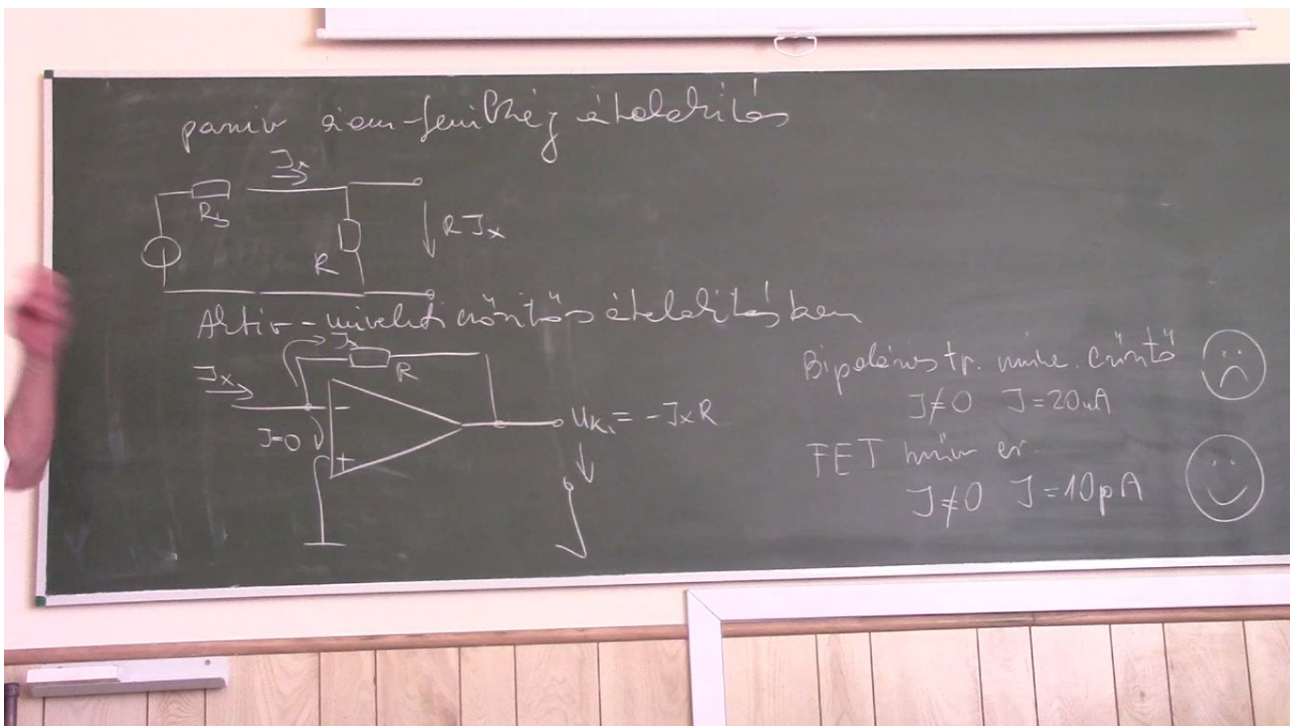 passzív áram-feszültség átalakítás
Jx
Rb
R
RJx
Aktív - műveleti erősítős átalakításban
Jx
R
Jx
-
J=0
+
Uki = -JxR
Bipoláris tr. műve. erősítő
J≠0 J=20nA
FET műv er.
J≠0 J=10pA